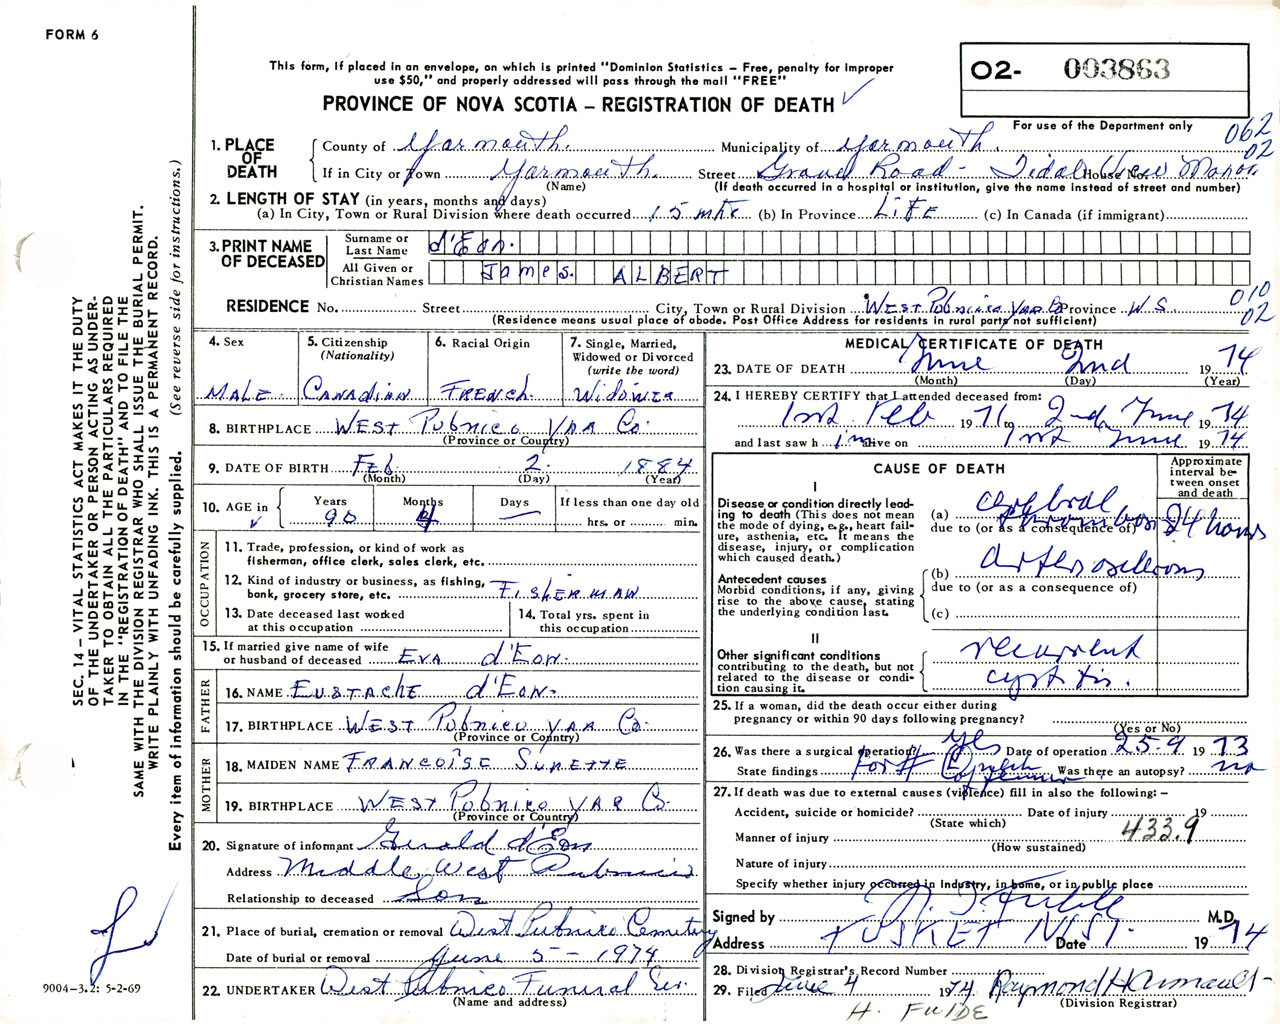 FORM 6
This form, if placed in an envelope, on which is printed "Dominion Statistics – Free, penalty for improper
use $50," and properly addressed will pass through the mail "FREE"
PROVINCE OF NOVA SCOTIA – REGISTRATION OF DEATH
O2- 003863
For use of the Department only
062
02
SEC. 14 – VITAL STATISTICS ACT MAKES IT THE DUTY
OF THE UNDERTAKER OR PERSON ACTING AS UNDER-
TAKER TO OBTAIN ALL THE PARTICULARS REQUIRED
IN THE "REGISTRATION OF DEATH" AND TO FILE THE
SAME WITH THE DIVISION REGISTRAR WHO SHALL ISSUE THE BURIAL PERMIT.
WRITE PLAINLY WITH UNFADING INK. THIS IS A PERMANENT RECORD.
Every item of information should be carefully supplied. (See reverse side for instructions.)
1. PLACE OF DEATH
County of Yarmouth. Municipality of Yarmouth.
If in City or Town Yarmouth. Street Gravel Road - Tidal View Manor House No.
(Name) (If death occurred in a hospital or institution, give the name instead of street and number)
2. LENGTH OF STAY (in years, months and days)
(a) In City, Town or Rural Division where death occurred 15 mths (b) In Province LIFE (c) In Canada (if immigrant)
3. PRINT NAME OF DECEASED
Surname or Last Name d'Eon.
All Given or Christian Names James. ALBERT
010
02
RESIDENCE No. Street City, Town or Rural Division WEST Pubnico YAR Co Province N.S.
(Residence means usual place of abode. Post Office Address for residents in rural parts not sufficient)
4. Sex MALE.
5. Citizenship (Nationality) CANADIAN
6. Racial Origin FRENCH.
7. Single, Married, Widowed or Divorced (write the word) WIDOWER
8. BIRTHPLACE WEST Pubnico YAR Co.
(Province or Country)
9. DATE OF BIRTH Feb. 2. 1884
(Month) (Day) (Year)
10. AGE in Years 90 Months 4 Days — If less than one day old hrs. or min.
OCCUPATION
11. Trade, profession, or kind of work as
fisherman, office clerk, sales clerk, etc.
12. Kind of industry or business, as fishing,
bank, grocery store, etc. FISHERMAN
13. Date deceased last worked
at this occupation
14. Total yrs. spent in
this occupation
15. If married give name of wife
or husband of deceased EVA d'EON.
FATHER
16. NAME EUSTACHE d'EON.
17. BIRTHPLACE WEST Pubnico YAR Co.
(Province or Country)
MOTHER
18. MAIDEN NAME FRANCOISE SURETTE
19. BIRTHPLACE WEST Pubnico YAR Co.
(Province or Country)
20. Signature of informant Gerald d'Eon
Address Middle West Pubnico
Relationship to deceased Son
21. Place of burial, cremation or removal West Pubnico Cemetery
Date of burial or removal June 5 – 1974
22. UNDERTAKER West Pubnico Funeral Ser.
(Name and address)
9004-3.2: 5-2-69
MEDICAL CERTIFICATE OF DEATH
23. DATE OF DEATH June 2nd 1974
(Month) (Day) (Year)
24. I HEREBY CERTIFY that I attended deceased from:
1st Feb 1971 to 2nd June 1974
and last saw h im alive on 1st June 1974
CAUSE OF DEATH
Approximate interval between onset and death
I
Disease or condition directly lead-
ing to death (This does not
mean the mode of dying, e.g., heart fail-
ure, asthenia, etc. It means the
disease, injury, or complication
which caused death.)
(a) cerebral thrombosis 24 hours
due to (or as a consequence of)
Antecedent causes
Morbid conditions, if any, giving
rise to the above cause, stating
the underlying condition last.
(b) arteriosclerosis
due to (or as a consequence of)
(c)
II
Other significant conditions
contributing to the death, but not
related to the disease or condi-
tion causing it.
recurrent
cystitis.
25. If a woman, did the death occur either during
pregnancy or within 90 days following pregnancy?
(Yes or No)
26. Was there a surgical operation? Yes Date of operation 25-9 1973
State findings for # femur Was there an autopsy? no
27. If death was due to external causes (violence) fill in also the following: –
Accident, suicide or homicide? Date of injury 19
(State which)
Manner of injury 433.9
(How sustained)
Nature of injury
Specify whether injury occurred in Industry, in home, or in public place
Signed by M.D.
Address TUSKET N.S. Date 1974
28. Division Registrar's Record Number
29. Filed June 4 1974 Raymond H Amirault
(Division Registrar)